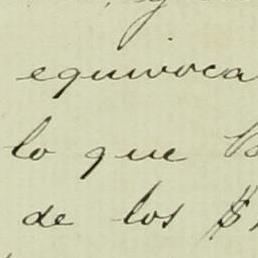 equivoca
lo que
de los $